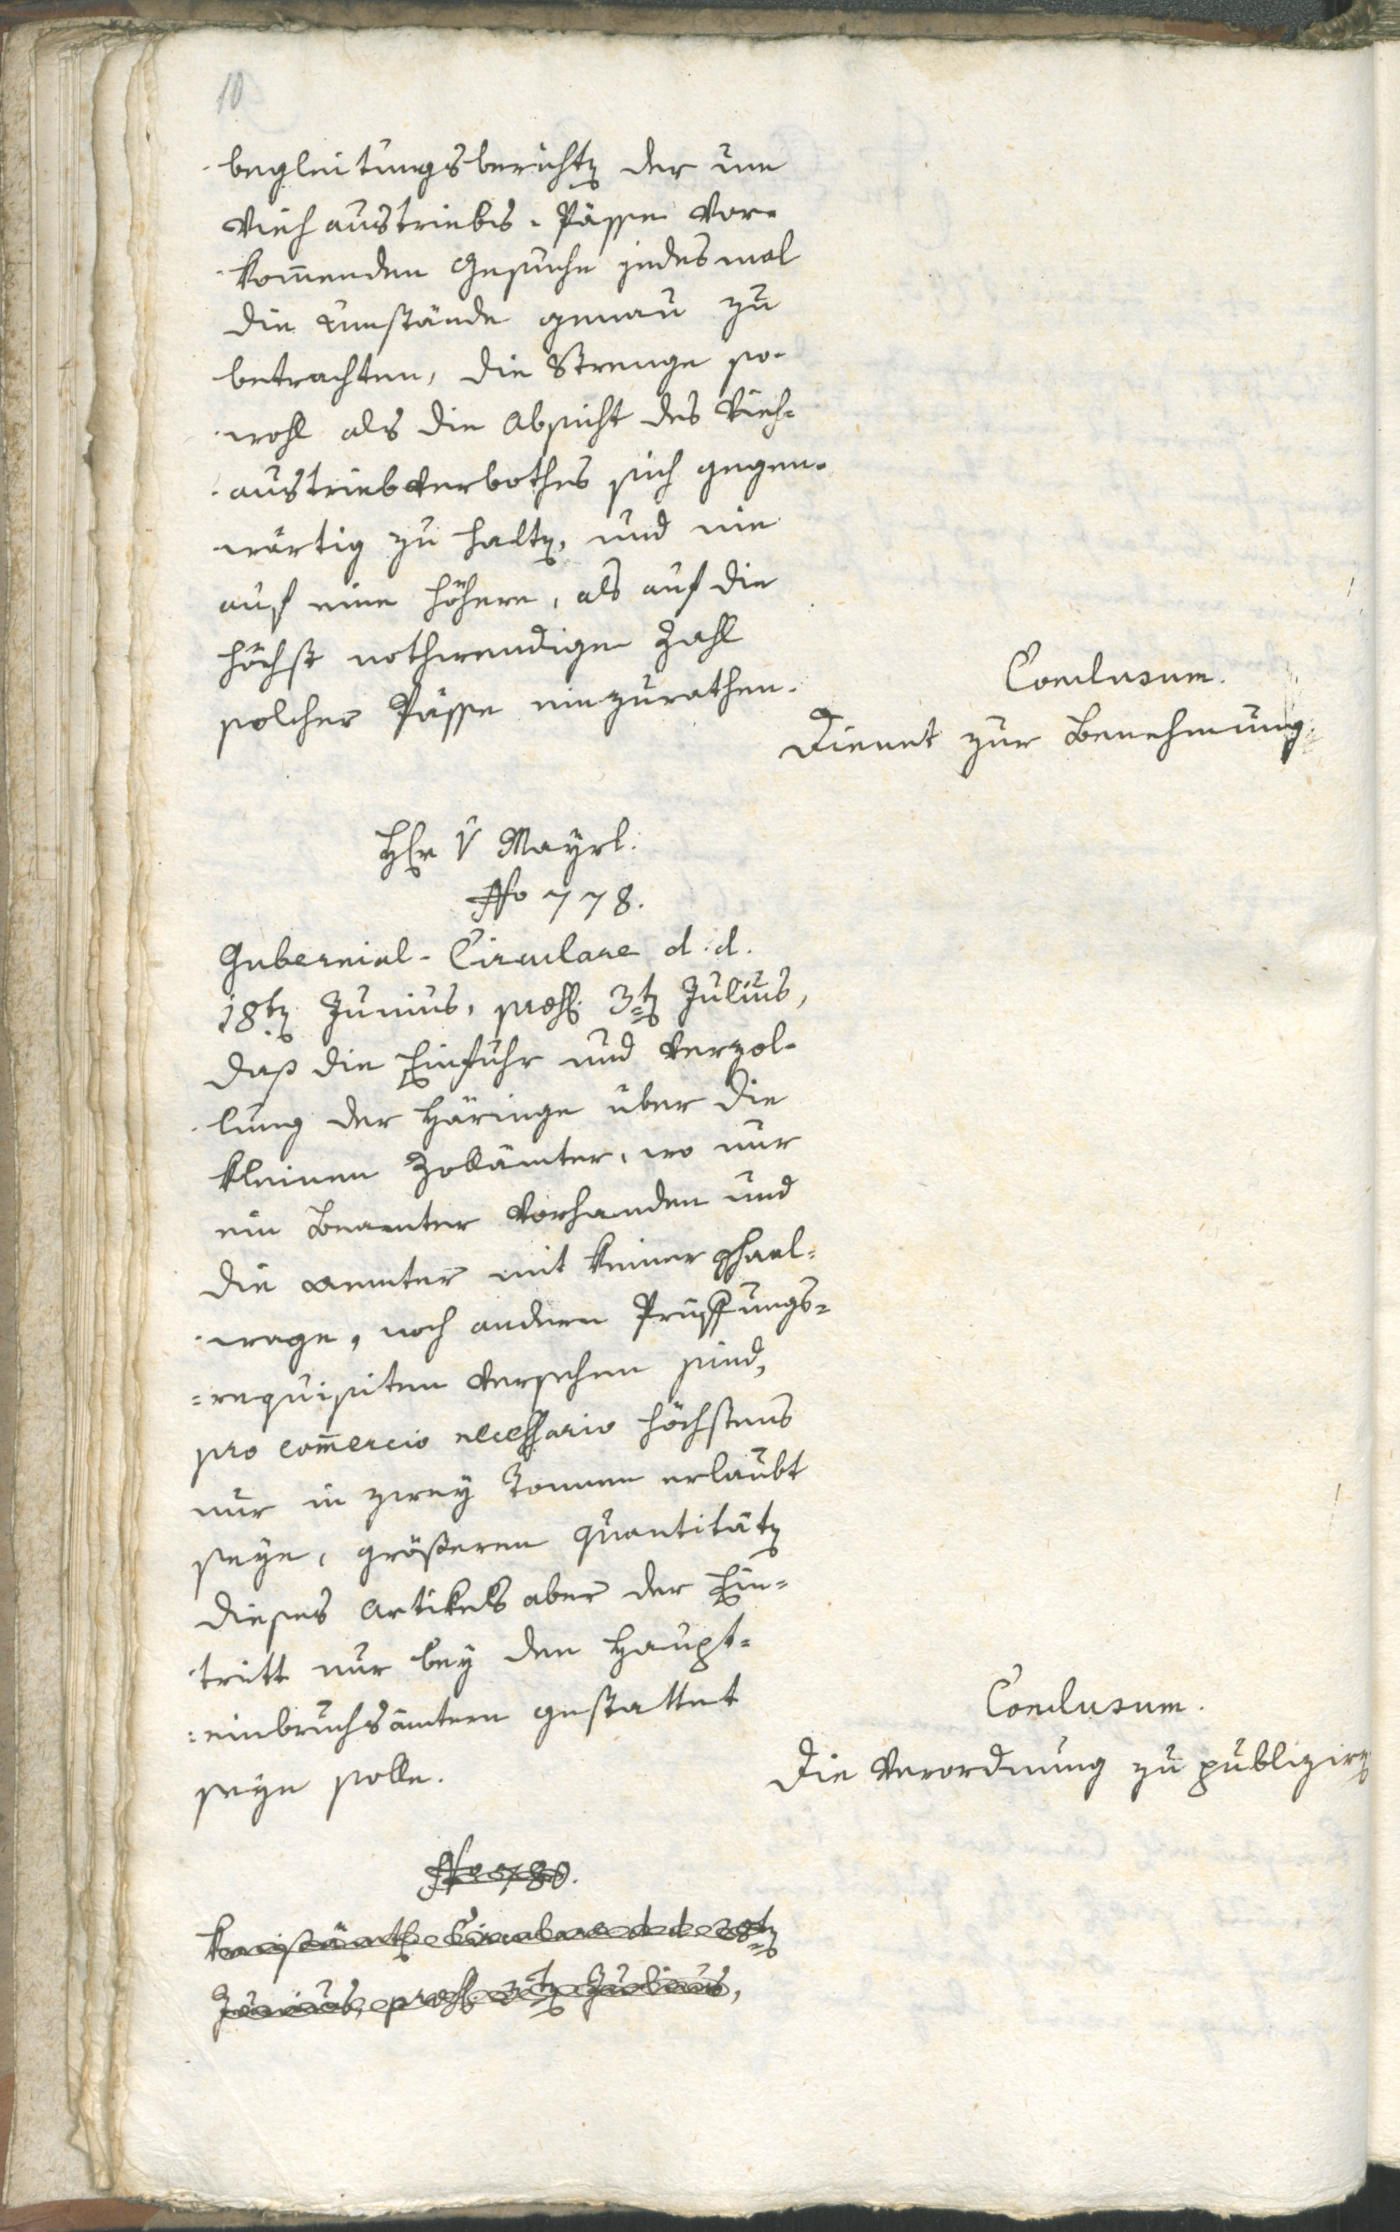 10
begleitungsberichtẽ der um
Viehaustriebs-Pässe vor-
kom̅enden Gesuche jedesmal
die Umstände genau zu
betrachten, die Strenge so-
wohl als die Absicht des Vieh-
austriebverbothes sich gegen-
wärtig zu haltẽ, und nie
auf eine höhere, als auf die
höchst nothwendige Zahl
solcher Pässe einzurathen.
Conclusum.
Dienet zur Benehmung.
Hr v Mayrl.
No 778.
Gubernial-Circulare d. d.
18tẽ Junius, præs. 3tẽ Julius,
daß die Einfuhr und Verzol-
lung der Häringe über die
kleinen Zollämter, wo nur
ein Beamter vorhanden und
die Aemter mit keiner Schael-
wage, noch andern Prüffungs-
=requisiten versehen sind,
pro com̅ercio necessario höchstens
nur in zwey Tonnen erlaubt
seye, größeren Quantitätẽ
dieses Artikels aber der Ein-
tritt nur bey den Haupt-
=einbruchsämtern gestattet
seyn solle.
Conclusum.
Die Verordnung zu publizirẽ
No 780.
Kreisämtl. Circulare d d 28tẽ
Junius, præs. 3tẽ Julius,